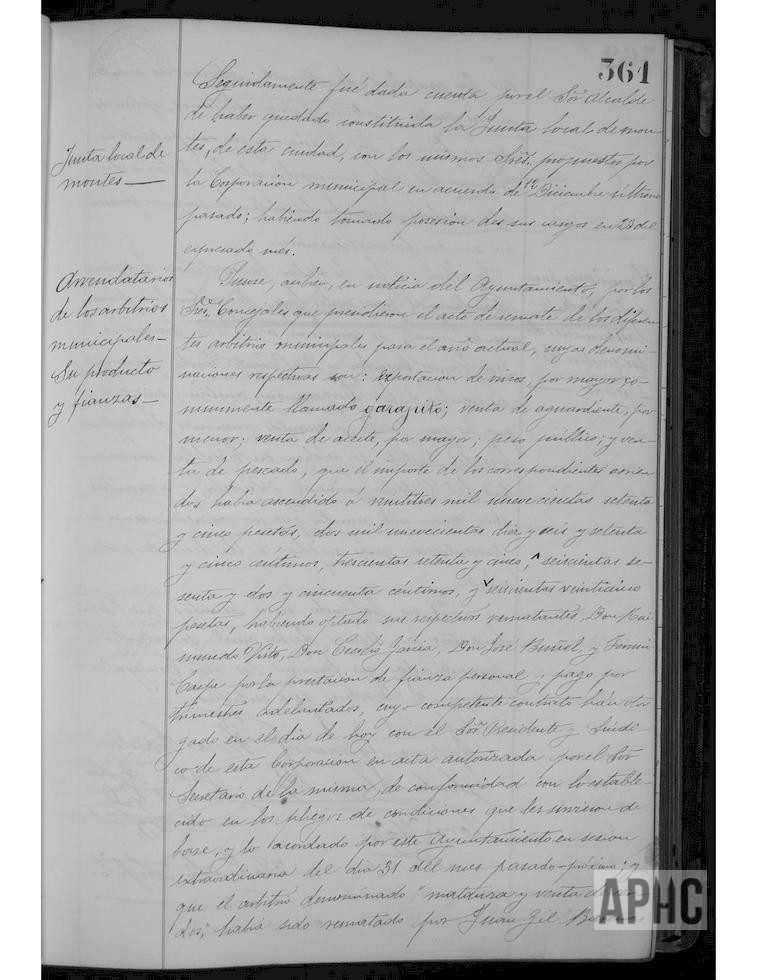 361
Seguidamente fué dada cuenta por el Sor Alcalde
de haber quedado constituida la Junta local de mon-
Junta local de
montes—
tes, de esta ciudad, con los mismos Sres. propuestos por
la Corporacion municipal en acuerdo de 12 Diciembre último
pasado; habiendo tomado posesion des sus cargos en 23 del
espresado més.
Arrendatarios
de los arbitrios
municipales-
Su producto
y fianzas—
Pusose, en noticia del Ayuntamiento, por los
Sres. Concejales que presidieron el acto de remate de los diferen-
tes arbitrios municipales para el año actual, cuyas denomi-
naciones respectivas son: exportacion de vinos, por mayor co-
munmente llamado garapito; venta de aguardiente, por
menor; venta de aceite, por mayor; peso público; y ven-
ta de pescado, que el importe de los correspondientes arrien-
dos habia ascendido á veintitres mil nuevecientas setenta
y cinco pesetas, dos mil nuevecientas diez y seis y setenta
y cinco centimos, trescientas setenta y cinco, seiscientas se-
senta y dos y cincuenta céntimos, y seiscientas veinticinco
pesetas, habiendo optado sus respectivos rematantes, Don Rai-
mundo Don Cecilio Garcia, Don José Buñol, y Fermin
Caspe por la prestacion de fianza personal y pago por
trimestres adelantados, cuyo competente contrato han otor
gado en el dia de hoy con el Sor Presidente y Sindi-
co de esta Corporacion en acta autorizada por el Sor
Secretario de la misma, de conformidad con lo estable-
cido en los pliegos de condiciones que les sirvieron de
base, y lo acordado por este Ayuntamiento en sesion
extraordinaria del dia 31 del mes pasado-próximo; y
que el arbitrio denominado "matanza y venta de
dos," habia sido rematado por Juan Gil
APHC